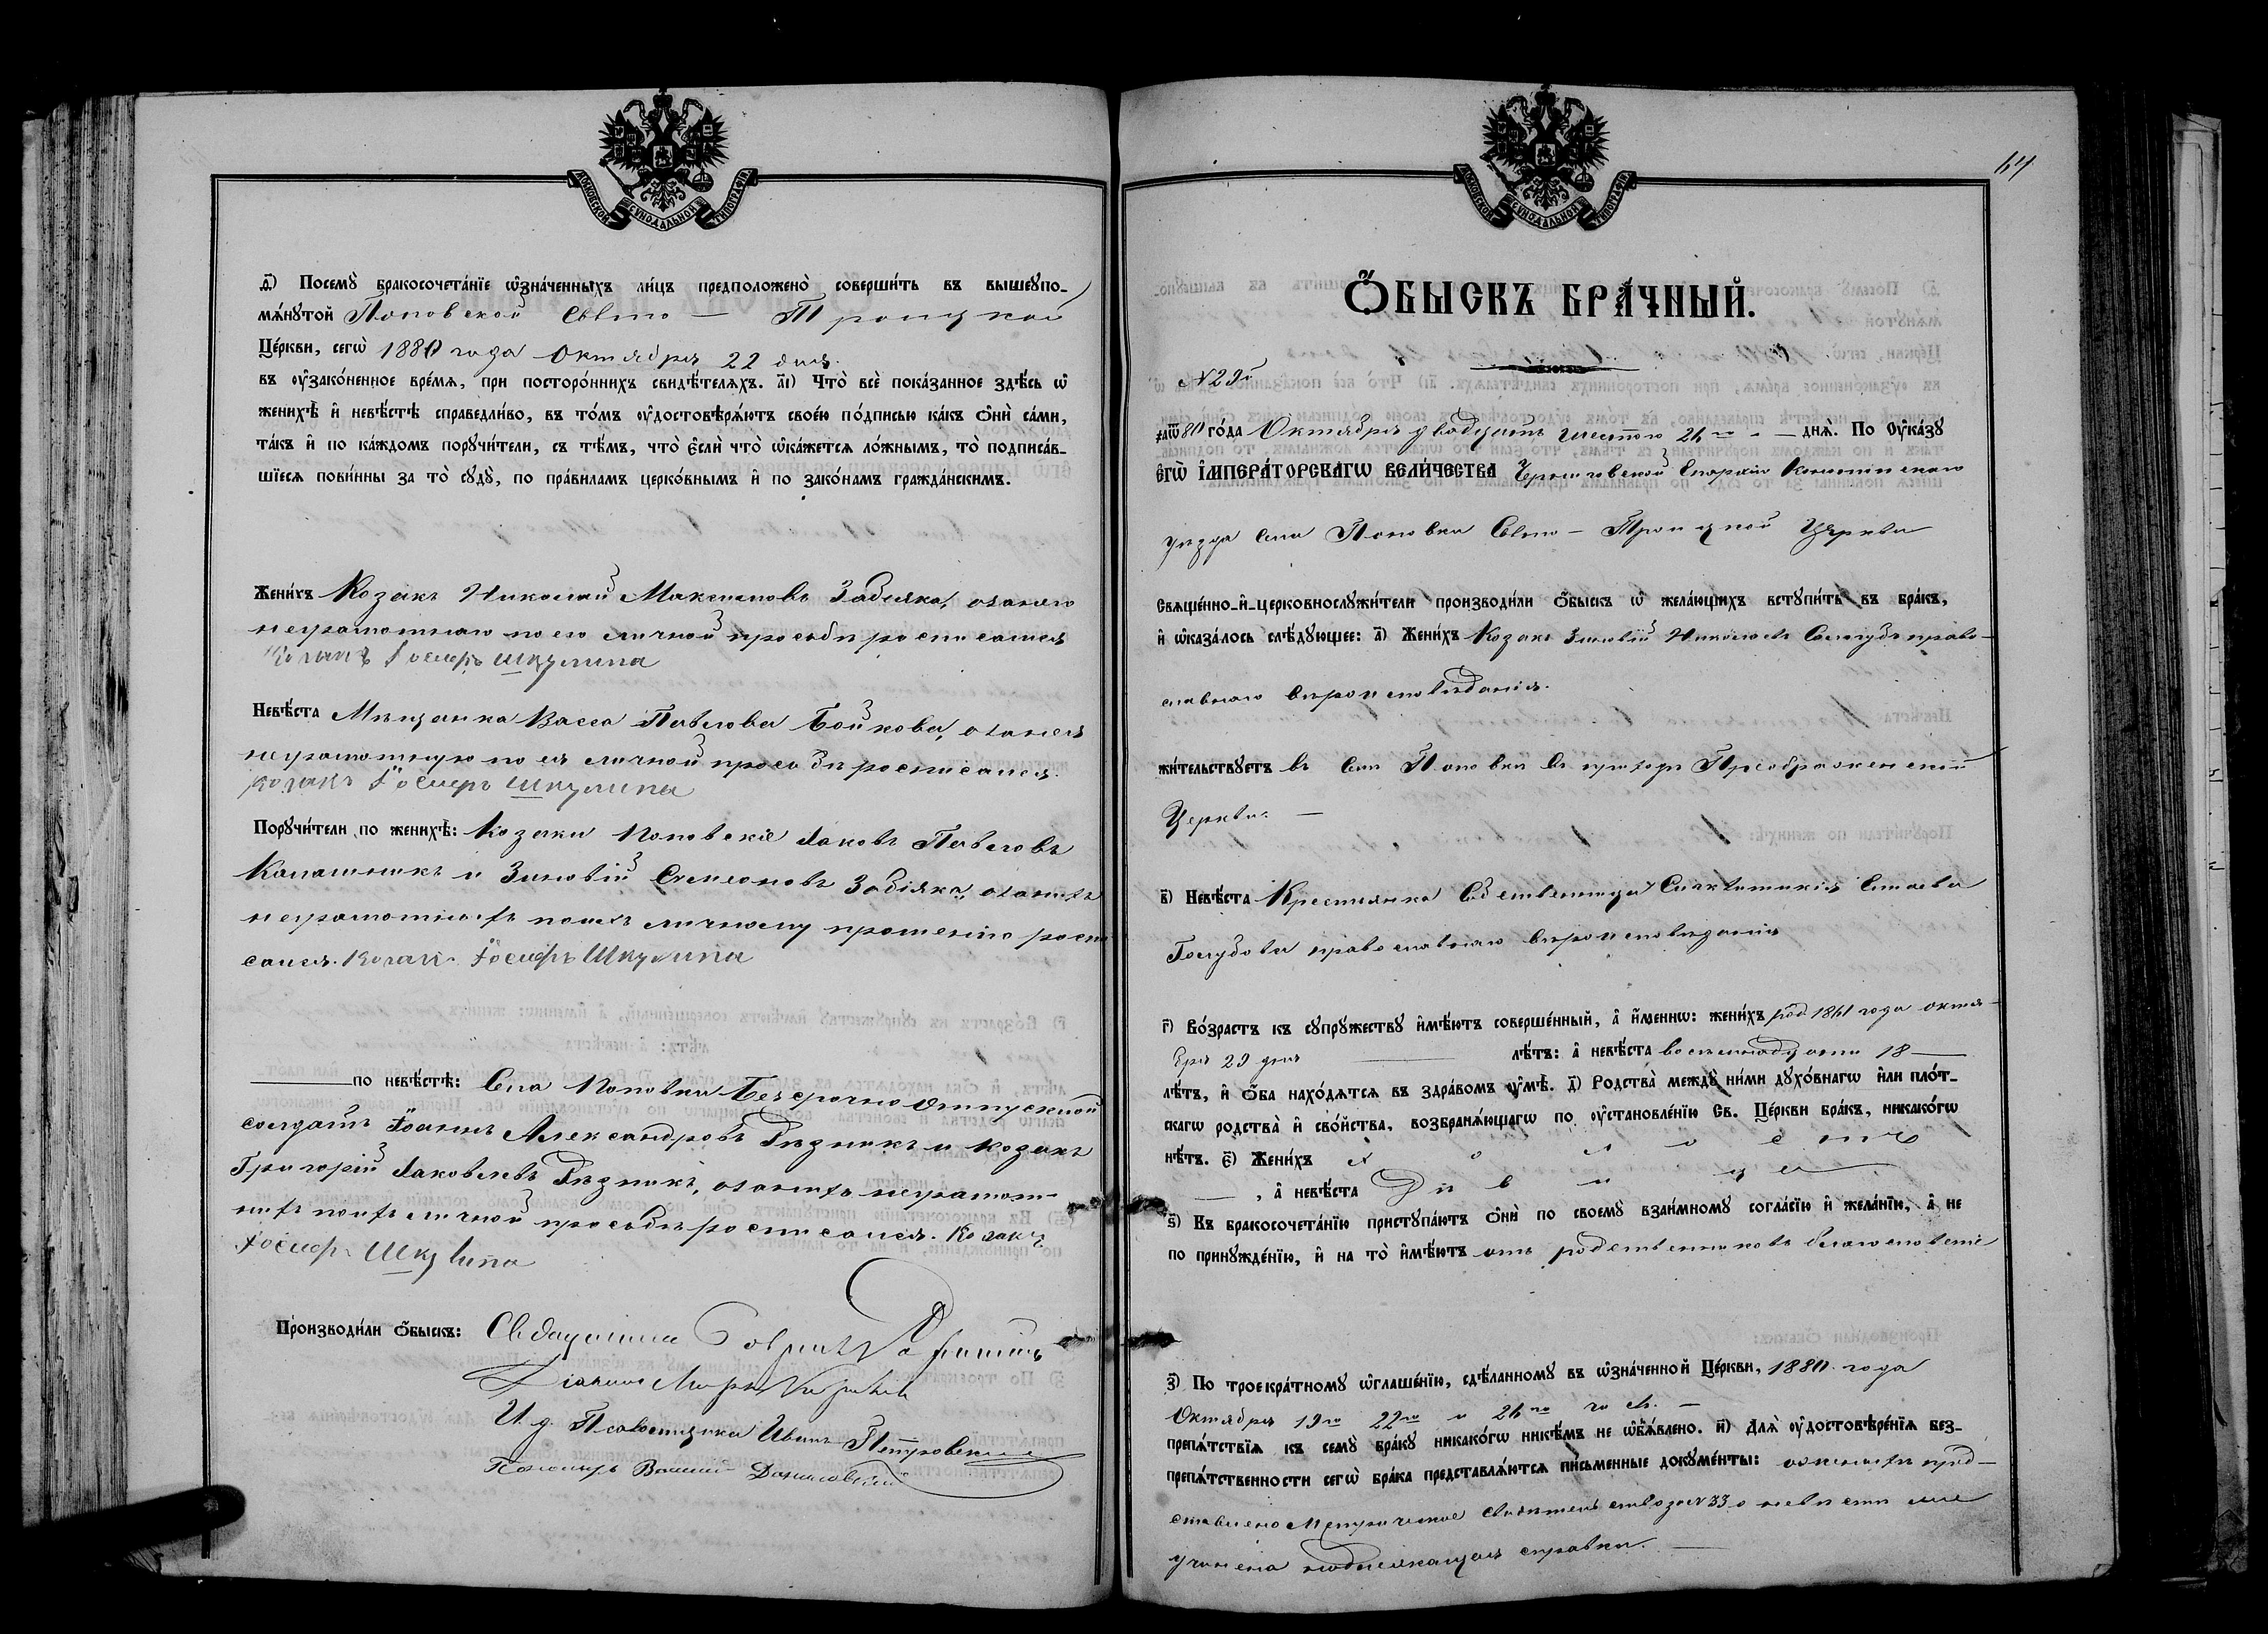 МОСКОВСКОЙ СУНОДАЛЬНОЙ ТИПОГРАФІИ
д҃) Посемꙋ̀ бракосочета́нїе ѡ҆зна́ченныхъ ли́цъ предположено̀ соверши́ть въ вышеꙋпо-
мѧ́нꙋтой Поповской Свято — Троицкой
Це́ркви, сегѡ̀ 1880 года Октября 22 дня.
въ ᲂу҆зако́ненное вре́мѧ, при посторо́ннихъ свидѣ́телѧхъ. а҃і) Что̀ всѐ пока́занное здѣ́сь ѡ҆
женихѣ̀ и҆ невѣ́стѣ справедли́во, въ то́мъ ᲂу҆достовѣрѧ́ютъ свое́ю по́дписью ка́къ ѻ҆нѝ са́ми,
та́къ и҆ по ка́ждомъ порꙋчи́тели, съ тѣ́мъ, что̀ є҆́сли что̀ ѡ҆ка́жетсѧ ло́жнымъ, то̀ подписа́в-
шїесѧ пови́нны за то̀ сꙋдꙋ̀, по пра́виламъ церко́внымъ и҆ по зако́намъ гражда́нскимъ.
Жени́хъ Козакъ Николай Максимовъ Забіяка, а за него
неграмотнаго по его личной просьбѣ росписался
Козакъ Іосифъ Шкулипа
Невѣ́ста Мѣщанка Васса Павлова Бойкова, а за нея
неграмотную по ея личной просьбѣ росписался
козакъ Іосифъ Шкулипа
Порꙋчи́тели по женихѣ̀: Козаки Поповскіе Яковъ Павловъ
Калашникъ и Зиновій Симеоновъ Забіяка, а за нихъ
неграмотныхъ по ихъ личному прошенію роспи
сался. Козакъ Іосифъ Шкулипа
— по невѣ́стѣ: Села Поповки Безсрочно Отпускной
солдатъ Іоаннъ Александровъ Рѣзникъ и козакъ
Григорій Яковлевъ Рѣзникъ, а за нихъ неграмот-
ныхъ по ихъ личной просьбѣ росписался. Козакъ
Іосифъ Шкулипа
Производи́ли ѻ҆́быскъ: Священникъ
Діаконъ
И. д. Псаломщика Иванъ Петровскій
Пономарь Василій Даниловскій
64
МОСКОВСКОЙ СУНОДАЛЬНОЙ ТИПОГРАФІИ
Ѻ҆́БЫСКЪ БРА́ЧНЫЙ.
N 29й
҂аѿ80 го́да Октября двадцать шестаго 26го — днѧ̀. По Оу҆ка́зꙋ
Є҆гѡ̀ И҆МПЕРА́ТОРСКАГѠ ВЕЛИ́ЧЕСТВА Черниговской Епархіи Конотопскаго
уѣзда села Поповки Свято — Троицкой Церкви
Свѧще́нно-и҆-церковнослꙋжи́тели производи́ли ѻ҆́быскъ ѡ҆ жела́ющихъ встꙋпи́ть въ бра́къ,
и҆ ѡ҆каза́лось слѣ́дꙋющее: а҃) Жени́хъ Козакъ Зиновій Николаевъ Солодубъ право-
славнаго вѣроисповѣданія.
жи́тельствꙋетъ въ селѣ Поповкѣ въ приходѣ Преображенской
Церкви. —
в҃) Невѣ́ста Крестьянка Собственница Синклитикія
Голубова православнаго вѣроисповѣданія
г҃) Во́зрастъ къ сꙋпрꙋ́жествꙋ и҆мѣ́ютъ соверше́нный, а҆ и҆́меннѡ: жени́хъ род 1861 года октя-
бря 29 дня — лѣ́тъ: а҆ невѣ́ста восемнадцати 18 —
лѣ́тъ, и҆ ѻ҆́ба нахо́дѧтсѧ въ здра́вомъ ᲂу҆мѣ̀. д҃) Родства̀ междꙋ̀ ни́ми дꙋхо́внагѡ и҆лѝ пло́т-
скагѡ родства̀ и҆ сво́йства, возбранѧ́ющагѡ по ᲂу҆становле́нїю Св. Це́ркви бра́къ, никако́гѡ
нѣ́тъ. є҃) Жени́хъ холостъ
— , а҆ невѣ́ста Дѣвица
ѕ҃) Къ бракосочета́нїю пристꙋпа́ютъ ѻ҆нѝ по своемꙋ̀ взаи́мномꙋ согла́сїю и҆ жела́нїю, а҆ не
по принꙋжде́нїю, и҆ на то̀ и҆мѣ́ютъ отъ родственниковъ благословеніе
з҃) По троекра́тномꙋ ѡ҆глаше́нїю, сдѣ́ланномꙋ въ ѡ҆зна́ченной Це́ркви, 1880 года
Октября 19го 22го и 26го чиселъ. —
препѧ́тствїѧ къ семꙋ̀ бра́кꙋ никако́гѡ никѣ́мъ не ѡ҆б̾ѧ́влено. и҃) Длѧ̀ ᲂу҆достовѣре́нїѧ без-
препѧ́тственности сегѡ̀ бра́ка представлѧ́ютсѧ пи́сьменные докꙋме́нты: о женихѣ пред-
ставлено Метрическое свидѣтельство за N 33 о невѣстѣ же
учинена надлежащая справка. —